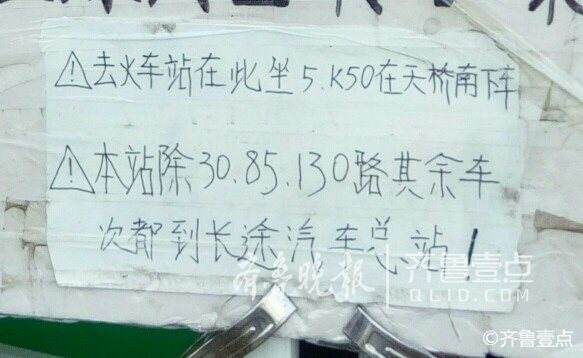 ⚠去火车站在此坐5.K50在天桥南下车
⚠本站除30.85.130路其余车
次都到长途汽车总站!
齐鲁晚报
齐鲁壹点
QLID.COM
©齐鲁壹点